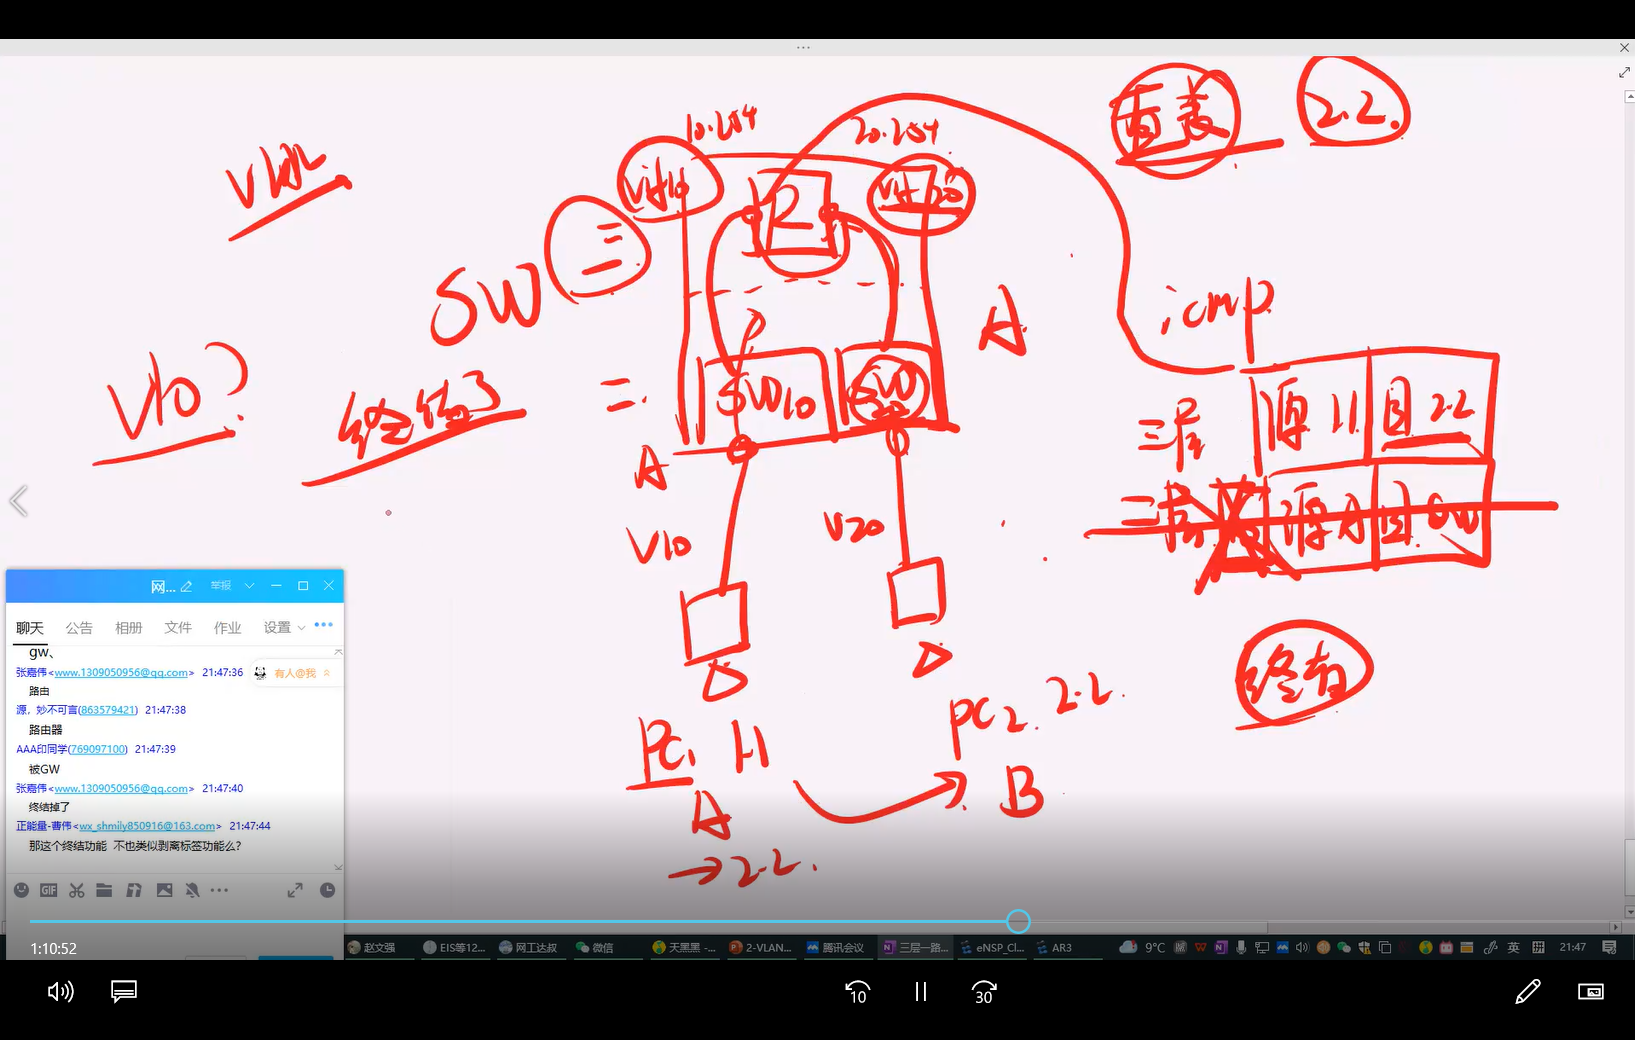 查表
2.2.
10.254
20.254
vif10
R
SW
三
A
icmp
V10?
终结了
二.
SW10
SW20
三层
源 1.1
目 2.2
二层
源A
目 GW
A
V10
V20
终结
PC1 1.1
PC2. 2.2.
A
B
→2.2.
网...
举报
聊天 公告 相册 文件 作业 设置
gw、
张嘉伟<www.1309050956@qq.com> 21:47:36
有人@我
路由
源，妙不可言(863579421) 21:47:38
路由器
AAA印同学(769097100) 21:47:39
被GW
张嘉伟<www.1309050956@qq.com> 21:47:40
终结掉了
正能量-曹伟<wx_shmily850916@163.com> 21:47:44
那这个终结功能 不也类似剥离标签功能么?
GIF
1:10:52
赵文强 EIS等12... 网工达叔 微信 天黑黑 -... 2-VLAN... 腾讯会议 三层一路... eNSP_Cl... AR3 9°C 英 21:47
10 30